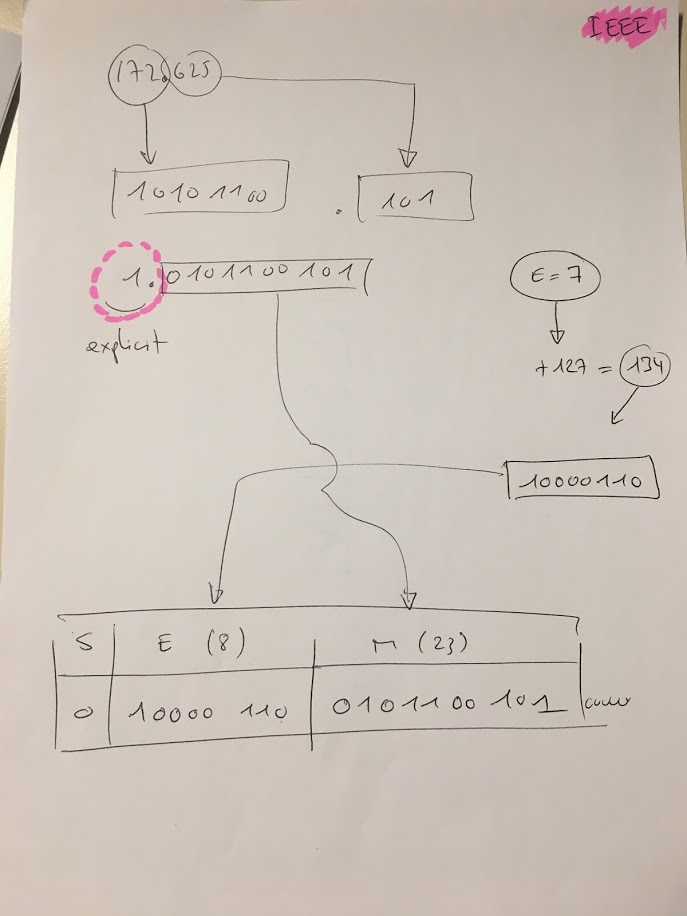 IEEE
172.625
10101100 . 101
1.0101100101
E=7
explicit
+127 = 134
10000110
S E (8) M (23)
0 10000 110 01011 00 101